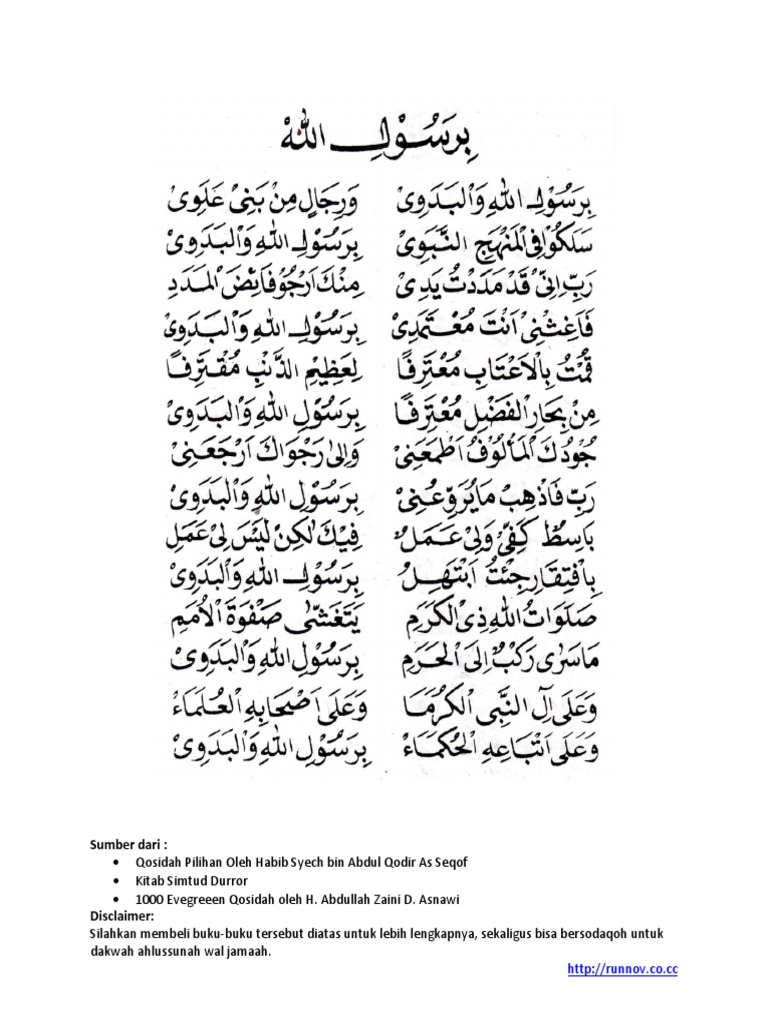 بِرَسُوْلِ اللهْ
بِرَسُوْلِ اللهِ وَالْبَدَوِىْ وَرِجَالٍ مِنْ بَنِىْ عَلَوِىْ
سَلَكُوْا فِى الْمَنْهَجِ النَّبَوِىْ بِرَسُوْلِ اللهِ وَالْبَدَوِىْ
رَبِّ اِنِّىْ قَدْ مَدَدْتُ يَدِىْ مِنْكَ اَرْجُوْ فَائِضَ الْمَدَدِ
فَاَغِثْنِىْ اَنْتَ مُعْتَمَدِىْ بِرَسُوْلِ اللهِ وَالْبَدَوِىْ
قُمْتُ بِالْاَعْتَابِ مُعْتَرِفًا لِعَظِيْمِ الذَّنْبِ مُقْتَرِفًا
مِنْ بِحَارِ الْفَضْلِ مُعْتَرِفًا بِرَسُوْلِ اللهِ وَالْبَدَوِىْ
جُوْدُكَ الْمَأْلُوْفُ اَطْمَعَنِىْ وَاِلىٰ رَجْوَاكَ اَرْجَعَنِىْ
رَبِّ فَاذْهِبْ مَا يُرَوِّعُنِىْ بِرَسُوْلِ اللهِ وَالْبَدَوِىْ
بَاسِطٌ كَفِّىْ وَلِىْ عَمَلٌ فِيْكَ لٰكِنْ لَيْسَ لِىْ عَمَلِ
بِافْتِقَارِ جِئْتُ اَبْتَهِلُ بِرَسُوْلِ اللهِ وَالْبَدَوِىْ
صَلَوَاتُ اللهِ ذِى الْكَرَمِ يَتَغَشّٰى صَفْوَةَ الْاُمَمِ
مَا سَرٰى رَكْبٌ اِلَى الْحَرَمِ بِرَسُوْلِ اللهِ وَالْبَدَوِىْ
وَعَلَى اٰلِ النَّبِى الْكُرَمَا وَعَلَى اَصْحَابِهِ الْعُلَمَاءْ
وَعَلَى اَتْبَاعِهِ الْحُكَمَاءْ بِرَسُوْلِ اللهِ وَالْبَدَوِىْ
Sumber dari :
• Qosidah Pilihan Oleh Habib Syech bin Abdul Qodir As Seqof
• Kitab Simtud Durror
• 1000 Evegreeen Qosidah oleh H. Abdullah Zaini D. Asnawi
Disclaimer:
Silahkan membeli buku-buku tersebut diatas untuk lebih lengkapnya, sekaligus bisa bersodaqoh untuk
dakwah ahlussunah wal jamaah.
http://runnov.co.cc